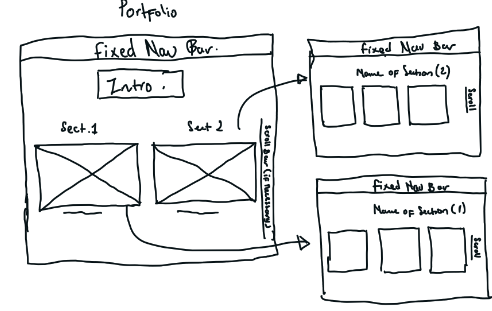 Portfolio
Fixed Nav Bar.
Intro.
Sect.1
Sect 2
Scroll Bar (if necessary)
Fixed Nav Bar
Name of Section (2)
Scroll
Fixed Nav Bar
Name of Section (1)
Scroll